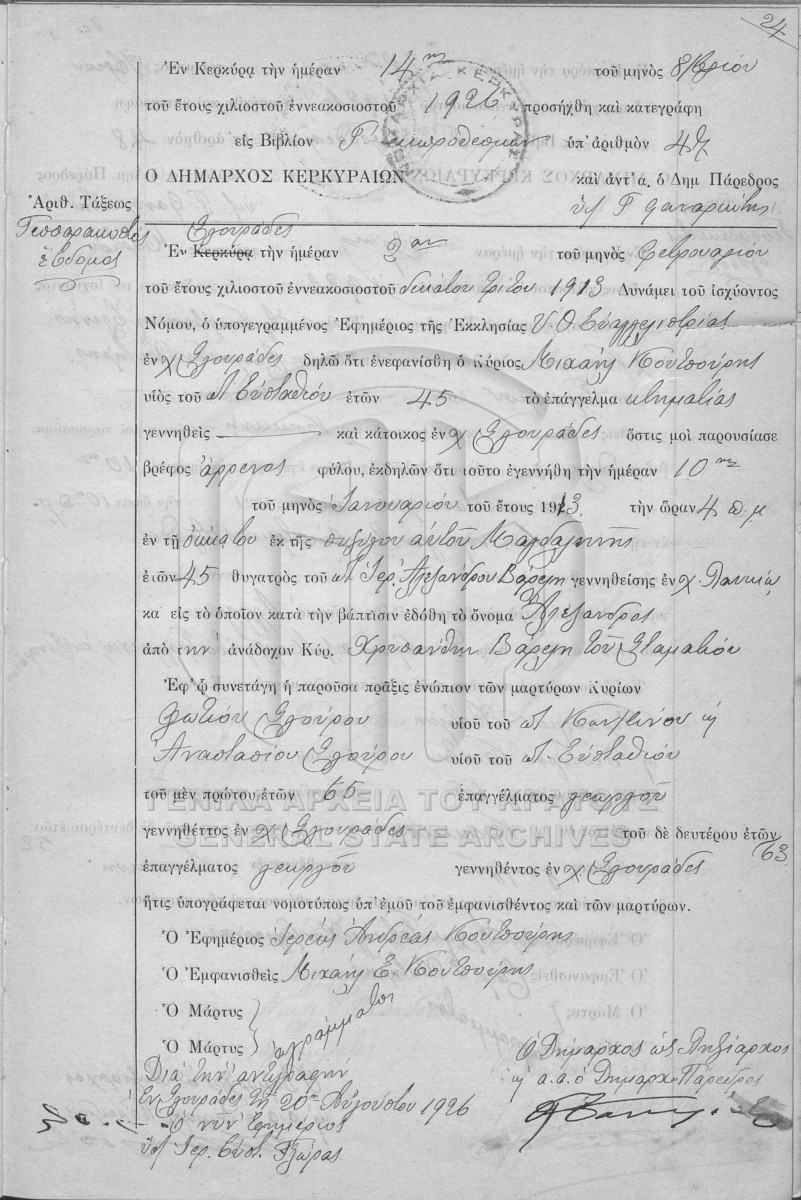 24
Ἐν Κερκύρᾳ τὴν ἡμέραν 14ην τοῦ μηνὸς 8/βρίου
τοῦ ἔτους χιλιοστοῦ ἐννεακοσιοστοῦ 1926 προσήχθη καὶ κατεγράφη
εἰς Βιβλίον Γ΄ ἐκπροθέσμων ὑπ' ἀριθμὸν 47
Ο ΔΗΜΑΡΧΟΣ ΚΕΡΚΥΡΑΙΩΝ καὶ ἀντ' α. ὁ Δημ Πάρεδρος
Ἀριθ. Τάξεως
Τεσσαρακοστὸς
ἕβδομος
Σγουράδες
Ἐν Κερκύρᾳ τὴν ἡμέραν 2αν τοῦ μηνὸς Φεβρουαρίου
τοῦ ἔτους χιλιοστοῦ ἐννεακοσιοστοῦ δεκάτου τρίτου 1913 Δυνάμει τοῦ ἰσχύοντος
Νόμου, ὁ ὑπογεγραμμένος Ἐφημέριος τῆς Ἐκκλησίας Υ.Θ. Εὐαγγελιστρίας
ἐν χ Σγουράδες δηλῶ ὅτι ἐνεφανίσθη ὁ Κύριος Μιχαὴλ Κουτσούρης
υἱὸς τοῦ ποτ Εὐσταθίου ἐτῶν 45 τὸ ἐπάγγελμα κτηματίας
γεννηθεὶς καὶ κάτοικος ἐν χ Σγουράδες ὅστις μοὶ παρουσίασε
βρέφος ἄρρενος φύλου, ἐκδηλῶν ὅτι τοῦτο ἐγεννήθη τὴν ἡμέραν 10ην
τοῦ μηνὸς Ἰανουαρίου τοῦ ἔτους 1913 τὴν ὥραν 4 π.μ
ἐν τῇ οἰκίᾳ του ἐκ τῆς συζύγου αὐτοῦ Μαγδαληνῆς
ἐτῶν 45 θυγατρὸς τοῦ ποτ Ἱερ. Ἀλεξάνδρου Βάρελη γεννηθείσης ἐν χ.
κα εἰς τὸ ὁποῖον κατὰ τὴν βάπτισιν ἐδόθη τὸ ὄνομα Ἀλέξανδρος
ἀπὸ τὴν ἀνάδοχον Κύρ. Χρυσάνθην Βάρελη τοῦ Σταματίου
Ἐφ' ᾧ συνετάγη ἡ παροῦσα πρᾶξις ἐνώπιον τῶν μαρτύρων Κυρίων
Φωτίου Σγούρου υἱοῦ τοῦ ποτ Κων/τίνου ἢ
Ἀναστασίου Σγούρου υἱοῦ τοῦ ποτ. Εὐσταθίου
τοῦ μὲν πρώτου ἐτῶν 65 ἐπαγγέλματος γεωργοῦ
ΓΕΝΙΚΑ ΑΡΧΕΙΑ ΤΟΥ ΚΡΑΤΟΥΣ
GENERAL STATE ARCHIVES
γεννηθέττος ἐν χ Σγουράδες τοῦ δὲ δευτέρου ἐτῶν 63
ἐπαγγέλματος γεωργοῦ γεννηθέντος ἐν χ Σγουράδες
ἥτις ὑπογράφεται νομοτύπως ὑπ' ἐμοῦ τοῦ ἐμφανισθέντος καὶ τῶν μαρτύρων.
Ὁ Ἐφημέριος Ἱερεὺς Ἀνδρέας Κουτσούρης
Ὁ Ἐμφανισθεὶς Μιχαὴλ Ε. Κουτσούρης
Ὁ Μάρτυς
Ὁ Μάρτυς ἀγράμματοι
Διὰ τὴν ἀντιγραφὴν
Ἐν Σγουράδες τῇ 20 Αὐγούστου 1926
Ὁ νῦν Ἐφημέριος
Ὁ Δήμαρχος ὡς Ληξίαρχος
ἢ α.α. ὁ Δημαρχ. Πάρεδρος